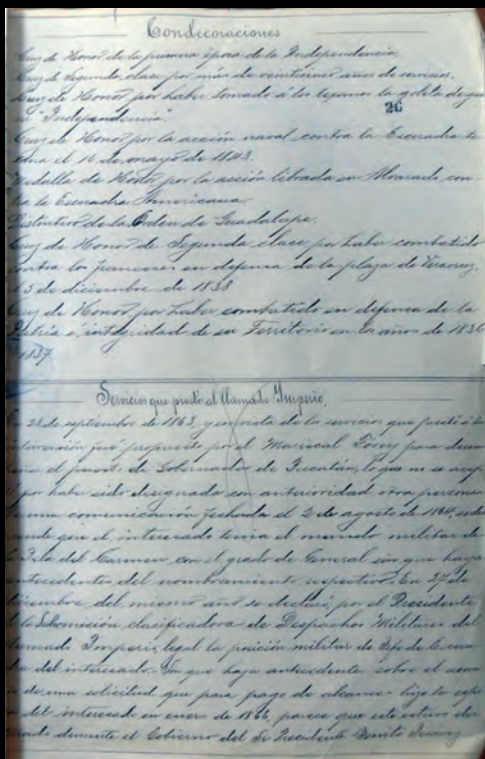 Condecoraciones
Cruz de Honor de la primera época de la Independencia.
Cruz de Segunda clase por más de veinticinco años de servicios.
Cruz de Honor por haber tomado á los tejanos la goleta de gue
26
ra "Independencia".
Cruz de Honor por la acción naval contra la Escuadra te
jana el 16 de mayo de 1843.
Medalla de Honor por la acción librada en Alvarado con
tra la Escuadra Americana.
Distintivo de la Orden de Guadalupe.
Cruz de Honor de Segunda clase por haber combatido
contra los franceses en defensa de la plaza de Veracruz,
5 de diciembre de 1838
Cruz de Honor por haber combatido en defensa de la
Patria é integridad de su Territorio en los años de 1836
1837
Servicios que prestó al llamado Imperio.
28 de septiembre de 1863, y en vista de los servicios que prestó á la
intervención fué propuesto por el Mariscal Forey para desem
el puesto de Gobernador de Yucatán, lo que no se acep
por haber sido designada con anterioridad otra persona
una comunicación fechada el 2 de agosto de 1864, se des
prende que el interesado tenía el mando militar de
la Isla del Carmen, con el grado de General sin que haya
antecedentes del nombramiento respectivo. En 27 de
diciembre del mismo año se declaró, por el Presidente
de la Subcomisión clasificadora de Despachos Militares del
llamado Imperio, legal la posición militar de Jefe de Escua
dra del interesado. Sin que haya antecedente sobre el
de una solicitud que para pago de alcances hizo la
del interesado en enero de 1866, parece que este estuvo
durante el Gobierno del Sr Presidente Benito Juarez